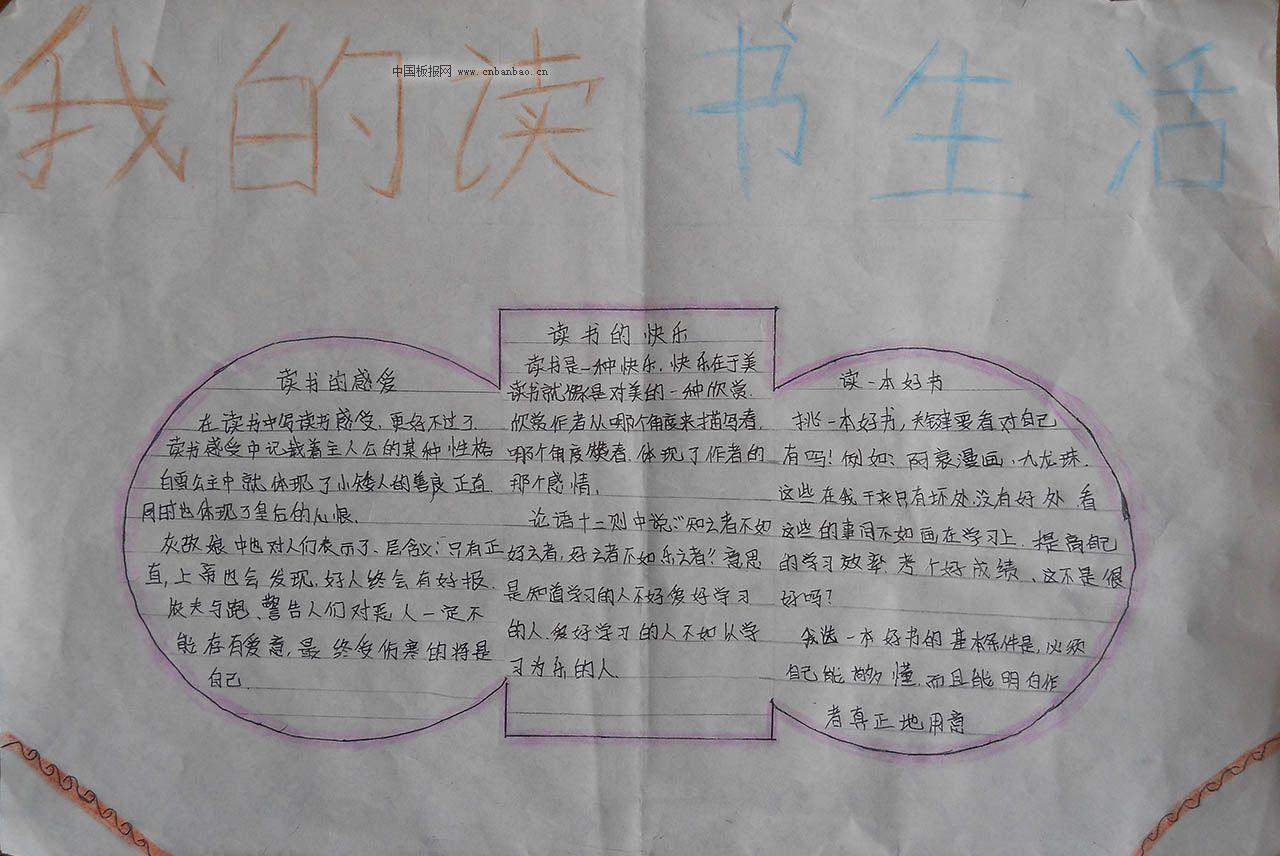 我的读书生活
中国板报网 www.cnbanbao.cn
读书的感爱
在读书中写读书感受,更好不过了.
读书感受中记载着主人公的某种性格
白雪公主中就体现了小矮人的善良正直.
同时也体现了皇后的仇恨.
灰故娘中也对人们表示了一层含义:只有正
直,上帝也会发现,好人终会有好报.
农夫与蛇、警告人们对恶人一定不
能存有爱意,最终受伤害的将是
自己.
读书的快乐
读书是一种快乐.快乐在于美
读书就像是对美的一种欣赏.
欣赏作者从哪个角度来描写着.
哪个角度赞着.体现了作者的
那个感情.
论语十二则中说:"知之者不如
好之者,好之者不如乐之者!"意思
是知道学习的人不好爱好学习
的人.爱好学习的人不如以学
习为乐的人.
读一本好书
挑一本好书,关键要看对自己
有吗!例如:阿衰漫画.九龙珠.
这些在我于来只有坏处没有好处.看
这些的事间不如画在学习上.提高自己
的学习效率.考个好成绩、这不是很
好吗?
我选一本好书的基本条件是,必须
自己能够懂.而且能明白作
者真正地用意